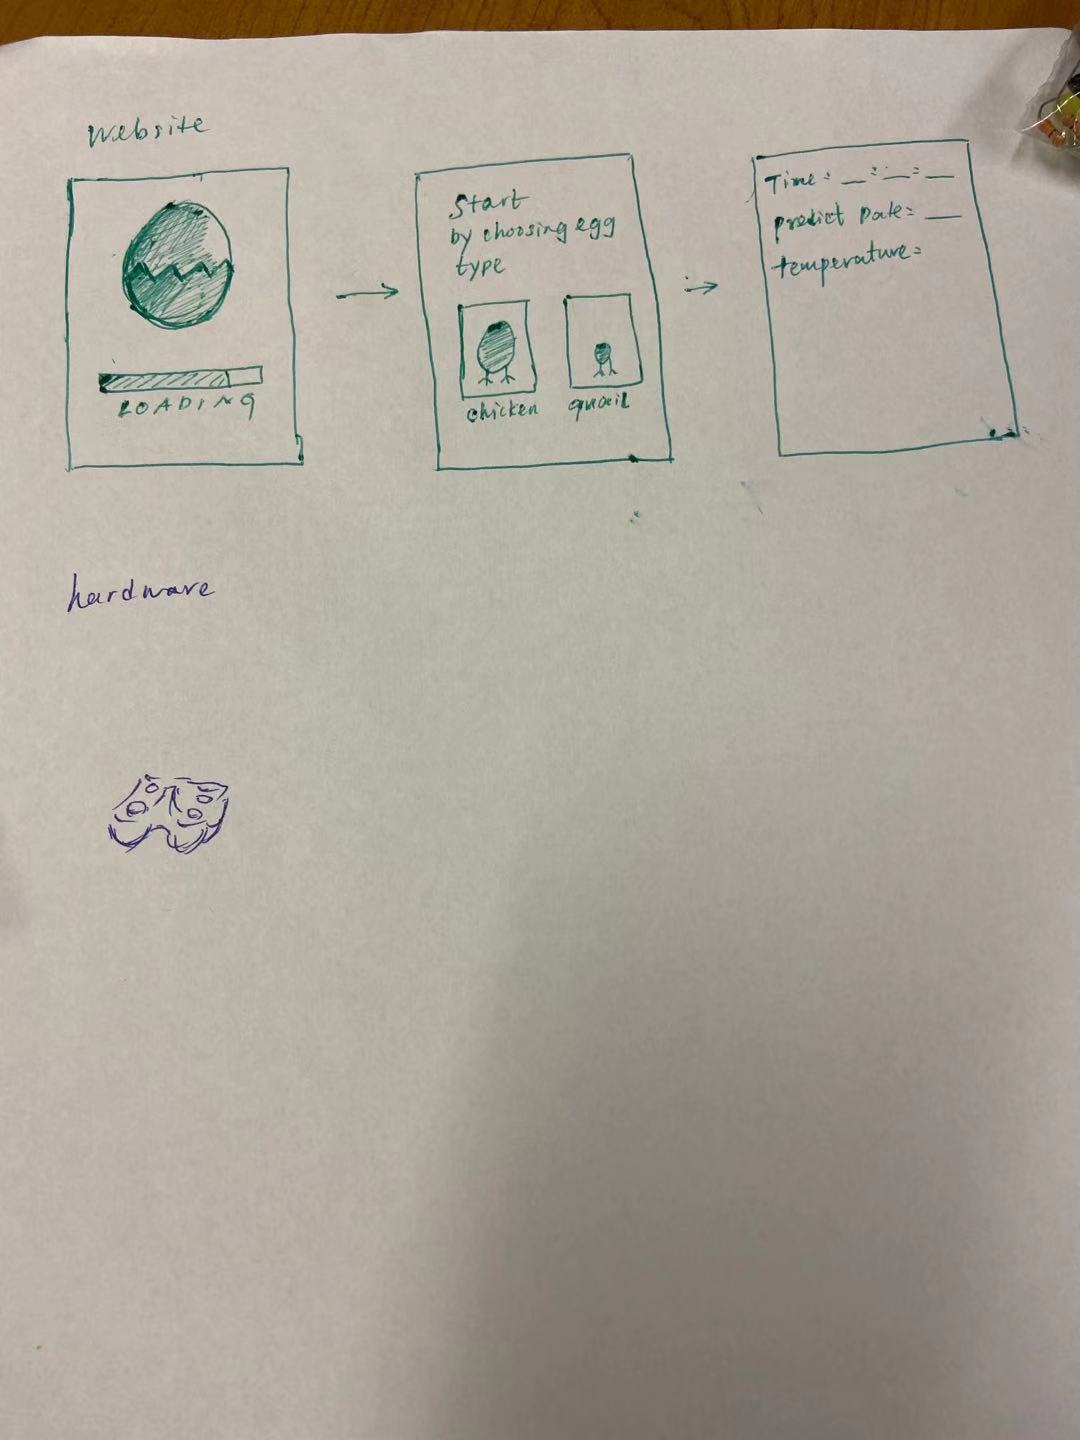 Website
LOADING
Start
by choosing egg
type
chicken
quail
Time: __:__:__
predict Date: __
temperature:
hardware